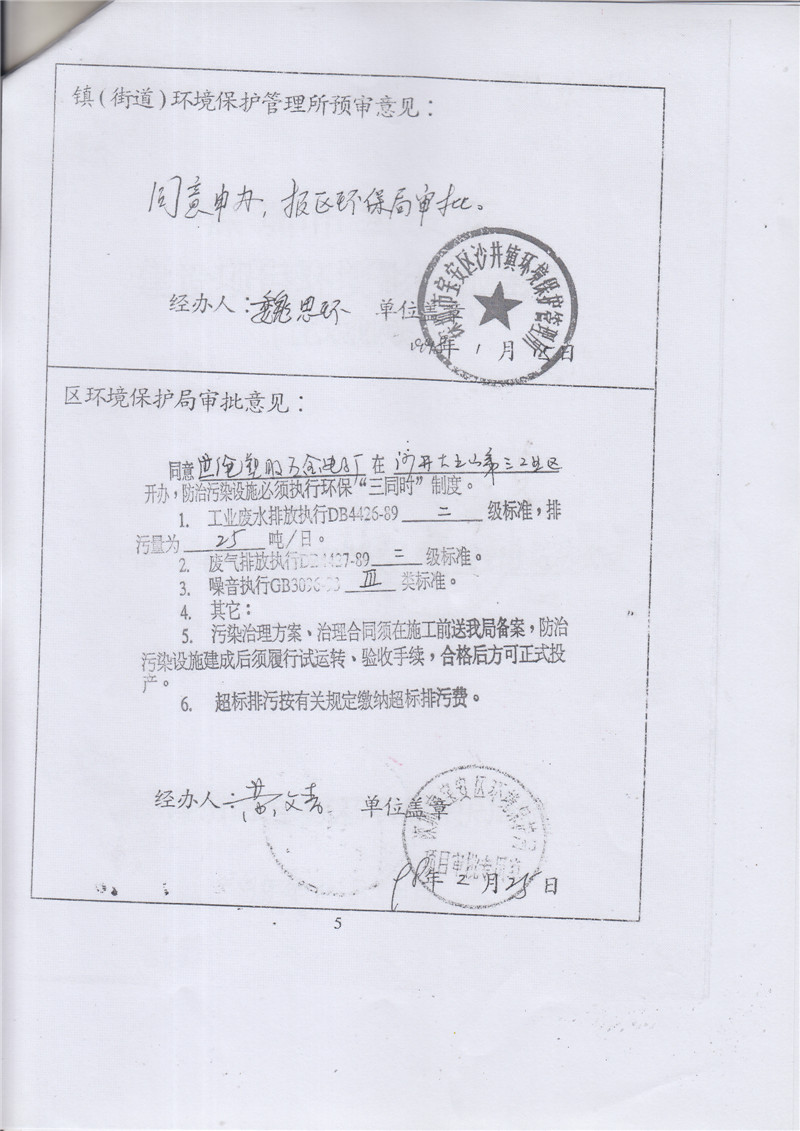 镇(街道)环境保护管理所预审意见：
同意申办，报区环保局审批。
深圳市宝安区沙井镇环境保护管理所
经办人：魏思环 单位盖章
年 1 月 日
区环境保护局审批意见：
同意 塑胶五金 厂 在 沙井大王山第三工业区
开办，防治污染设施必须执行环保“三同时”制度。
1. 工业废水排放执行DB4426-89 二 级标准，排
污量为 25 吨/日。
2. 废气排放执行DB4427-89 二 级标准。
3. 噪音执行GB3096-93 III 类标准。
4. 其它：
5. 污染治理方案、治理合同须在施工前送我局备案，防治
污染设施建成后须履行试运转、验收手续，合格后方可正式投
产。
6. 超标排污按有关规定缴纳超标排污费。
深圳市宝安区环境保护局
经办人： 单位盖章
项目审批专用章
98年 2 月 25 日
5